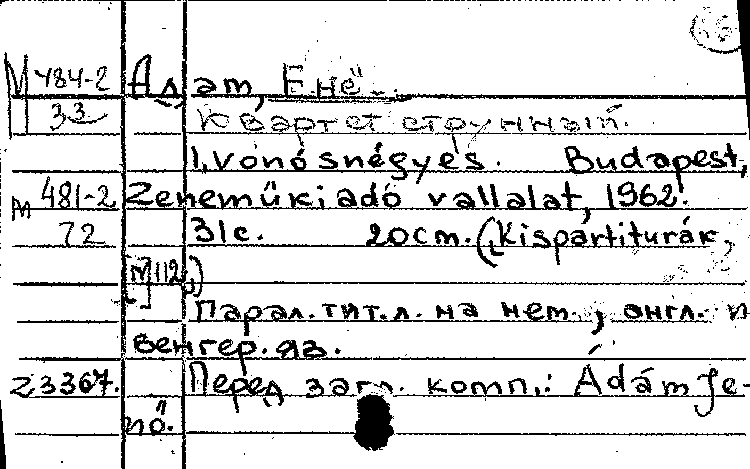 66
М 484-2 Адам, Енё.
33 Квартет струнный.
1. vonósnégyes. Budapest,
М 481-2 Zeneműkiadó vallalat, 1962.
72 31с. 20cm. (Kispartiturák,
[М] 112.)
Парал. тит. л. на нем., англ. и
венгер. яз.
23367. Перед загл. комп.: Ádám Je-
nő.